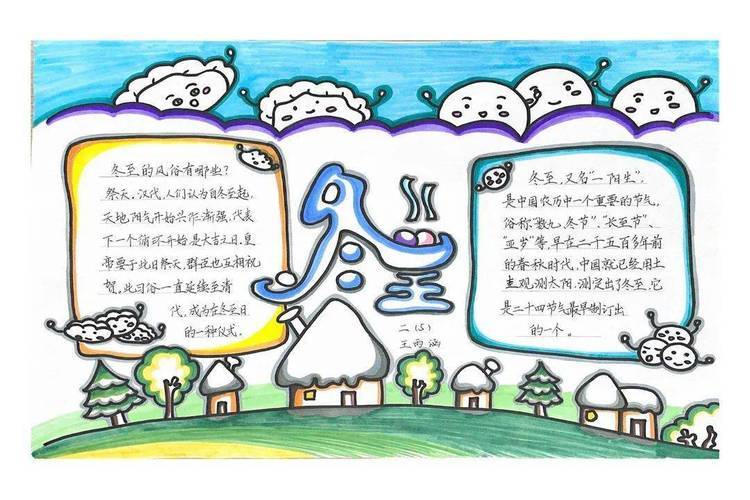 冬至的风俗有哪些?
祭天,汉代,人们认为自冬至起,
天地阳气开始兴作渐强,代表
下一个循环开始是大吉之日,皇
帝要于此日祭天,群臣也互相祝
贺,此习俗一直延续至清
代,成为在冬至日
的一种仪式.
冬至
二(5)
王雨涵
冬至,又名"一阳生",
是中国农历中一个重要的节气,
俗称"数九、冬节"、"长至节"、
"亚岁"等,早在二千五百多年前
的春秋时代,中国就已经用土
圭观测太阳,测定出了冬至,它
是二十四节气最早制订出
的一个。